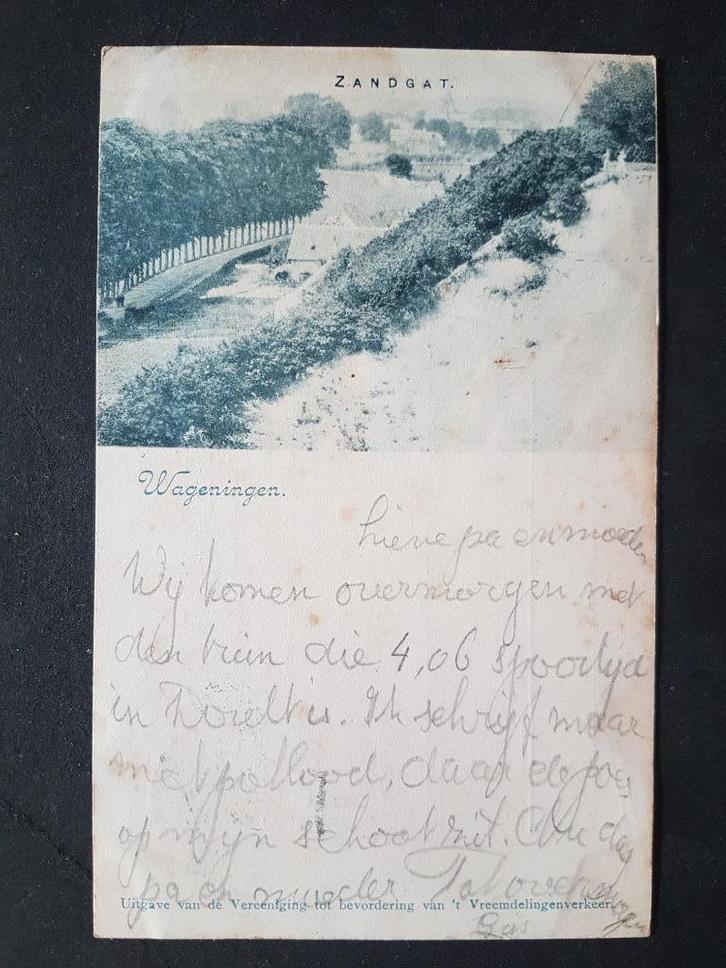 ZANDGAT.
Wageningen.
Lieve pa en moeder
Wij komen overmorgen met
den trein die 4,06 spoortijd
in Dordt is. Ik schrijf maar
met potlood, daar de poes
op mijn schoot zit. Nu dag
pa en moeder Tot overmorgen
Uitgave van de Vereeniging tot bevordering van 't Vreemdelingenverkeer.